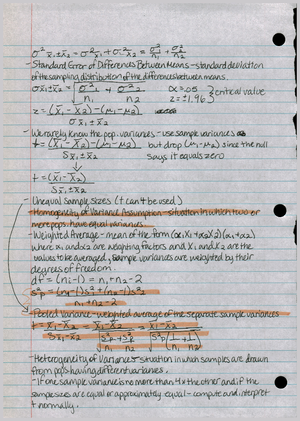 σ² x̄₁±x̄₂ = σ² x̄₁ + σ² x̄₂ = σ²₁/n₁ + σ²₂/n₂
- Standard Error of Differences Between Means - standard deviation
of the sampling distribution of the differences between means.
σx̄₁±x̄₂ = √(σ²₁/n₁ + σ²₂/n₂)   α=.05 z=±1.96 } critical value
z = (X̄₁-X̄₂)-(μ₁-μ₂) / σx̄₁±x̄₂
- We rarely know the pop. variances - use sample variances
t = (X̄₁-X̄₂)-(μ₁-μ₂) / Sx̄₁±x̄₂   but drop (μ₁-μ₂) since the null
says it equals zero
t = (X̄₁-X̄₂) / Sx̄₁±x̄₂
- Unequal Sample Sizes (t can't be used)
- Homogeneity of Variance Assumption - situation in which two or
more pops. have equal variances
- Weighted Average - mean of the form (α₁X₁+α₂X₂)/(α₁+α₂)
where α₁ and α₂ are weighting factors and X₁ and X₂ are the
values to be averaged, sample variances are weighted by their
degrees of freedom.
df = (n₁-1) = n₁+n₂-2
S²p = (n₁-1)S²₁+(n₂-1)S²₂ / n₁+n₂-2
- Pooled Variance - weighted average of the separate sample variances
t = X̄₁-X̄₂ / Sx̄₁-x̄₂ = X̄₁-X̄₂ / √(S²p/n₁ + S²p/n₂) = X̄₁-X̄₂ / √(S²p(1/n₁ + 1/n₂))
- Heterogeneity of Variances - situation in which samples are drawn
from pops having different variances.
- if one sample variance is no more than 4x the other and if the
sample sizes are equal or approximately equal - compute and interpret
t normally.